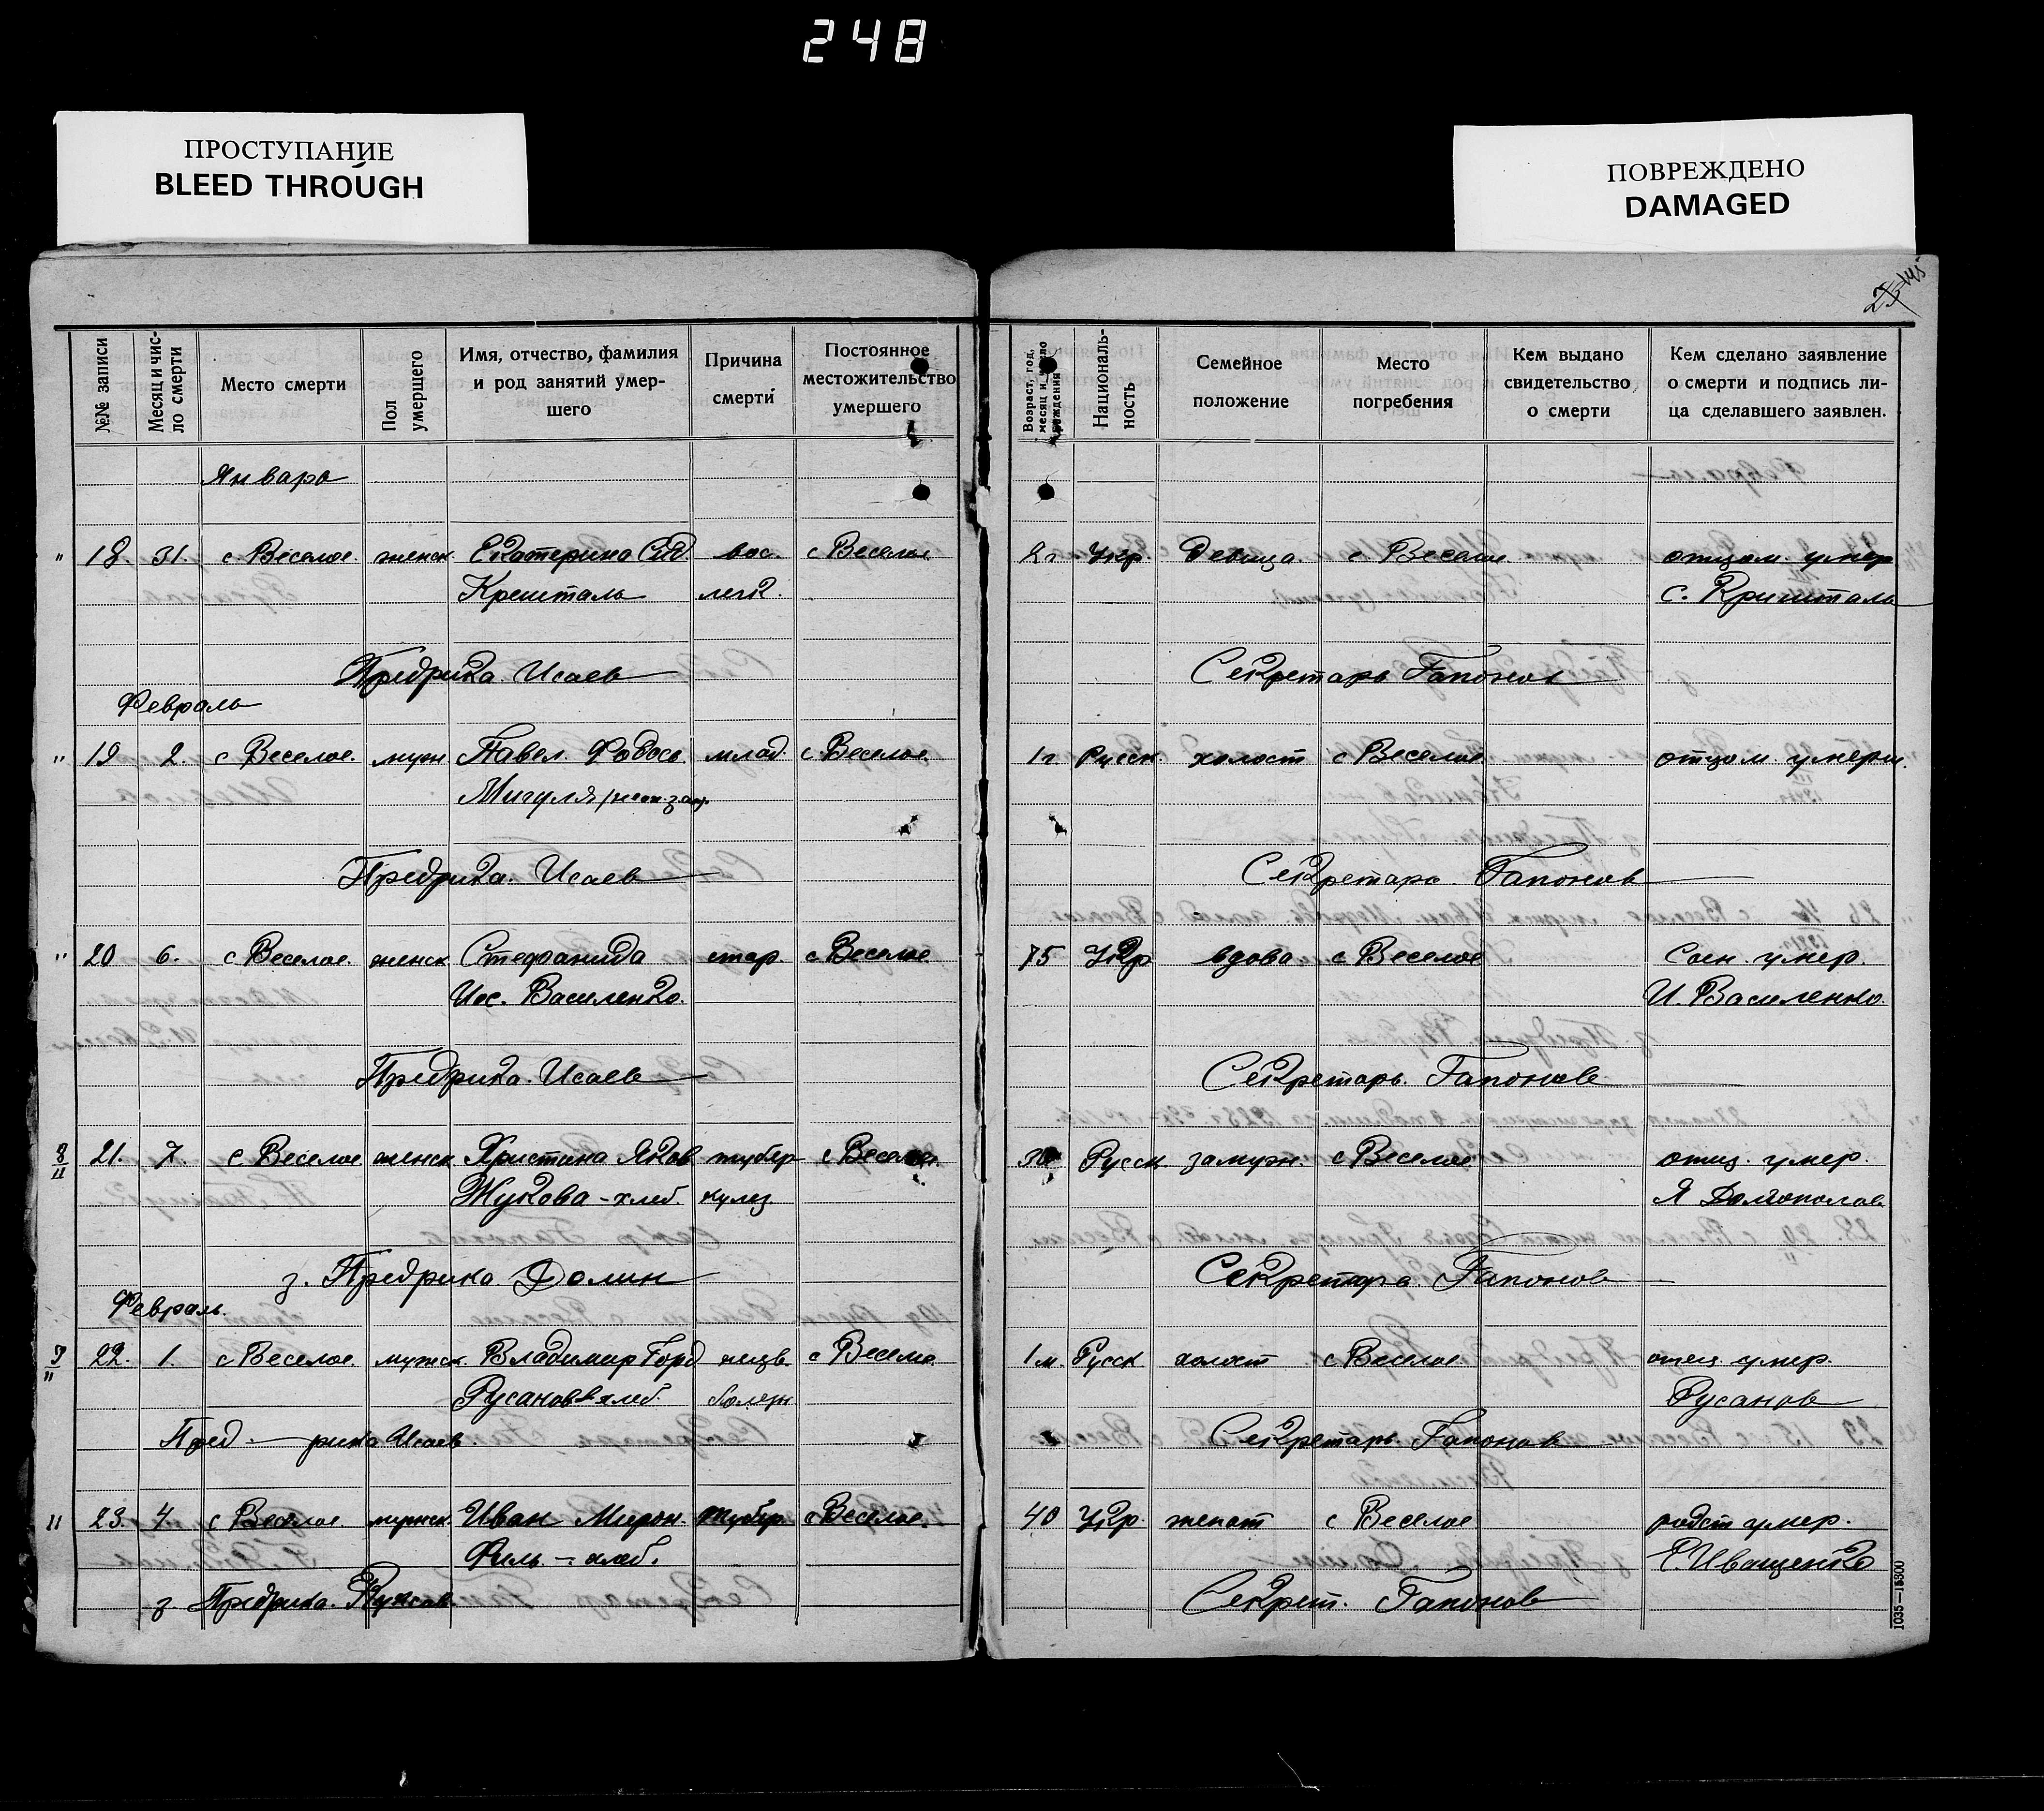 248
ПРОСТУПАНИЕ
BLEED THROUGH
ПОВРЕЖДЕНО
DAMAGED
№№ записи
Месяц и число смерти
Место смерти
Пол умершего
Имя, отчество, фамилия
и род занятий умер-
шего
Причина
смерти
Постоянное
местожительство
умершего
Возраст, год, месяц и число рождения
Националь-
ность
Семейное
положение
Место
погребения
Кем выдано
свидетельство
о смерти
Кем сделано заявление
о смерти и подпись ли-
ца сделавшего заявлен.
Январь
" 18. 31. с Веселое. женск. Екатерина Сид. вос. с Веселое 2г Укр. девица с. Веселое отцом умер
Кришталь легк. С. Кришталь
Предрика Исаев Секретарь Гапонов
Февраль
" 19 2. с Веселое. муж Павел Федос. млад. с Веселое. 1г Русск. холост с Веселое отцом умерш.
Мигуля
Предрика. Исаев Секретарь Гапонов
" 20 6. с Веселое. женск Стефанида стар с Веселое 75 Укр вдова с Веселое Сын. умер.
Иос. Василенко. И. Василенко.
Предрика. Исаев Секретарь. Гапонов
8/II 21. 7. с Веселое женск Христина Яков тубер с Веселое Русск замужн. с Веселое отец. умер.
Жукова - хлеб. кулез Я Долгополов
з. Предрика Долин Секретарь. Гапонов
Февраль.
9/II 22. 1. с Веселое. мужск. Владимир Горд неизв. с Веселое 1 м. Русск холост с Веселое отец умер.
Русанов хлеб. болезн Русанов
Пред - рика Исаев. Секретарь. Гапонов
11 23. 4. с Веселое. мужск. Иван Мирон. Тубер с Веселое. 40 Укр. женат с Веселое родст умер.
Филь. - хлеб. Е. Иващенко
з. Предрика. Секрет. Гапонов
1035—15300